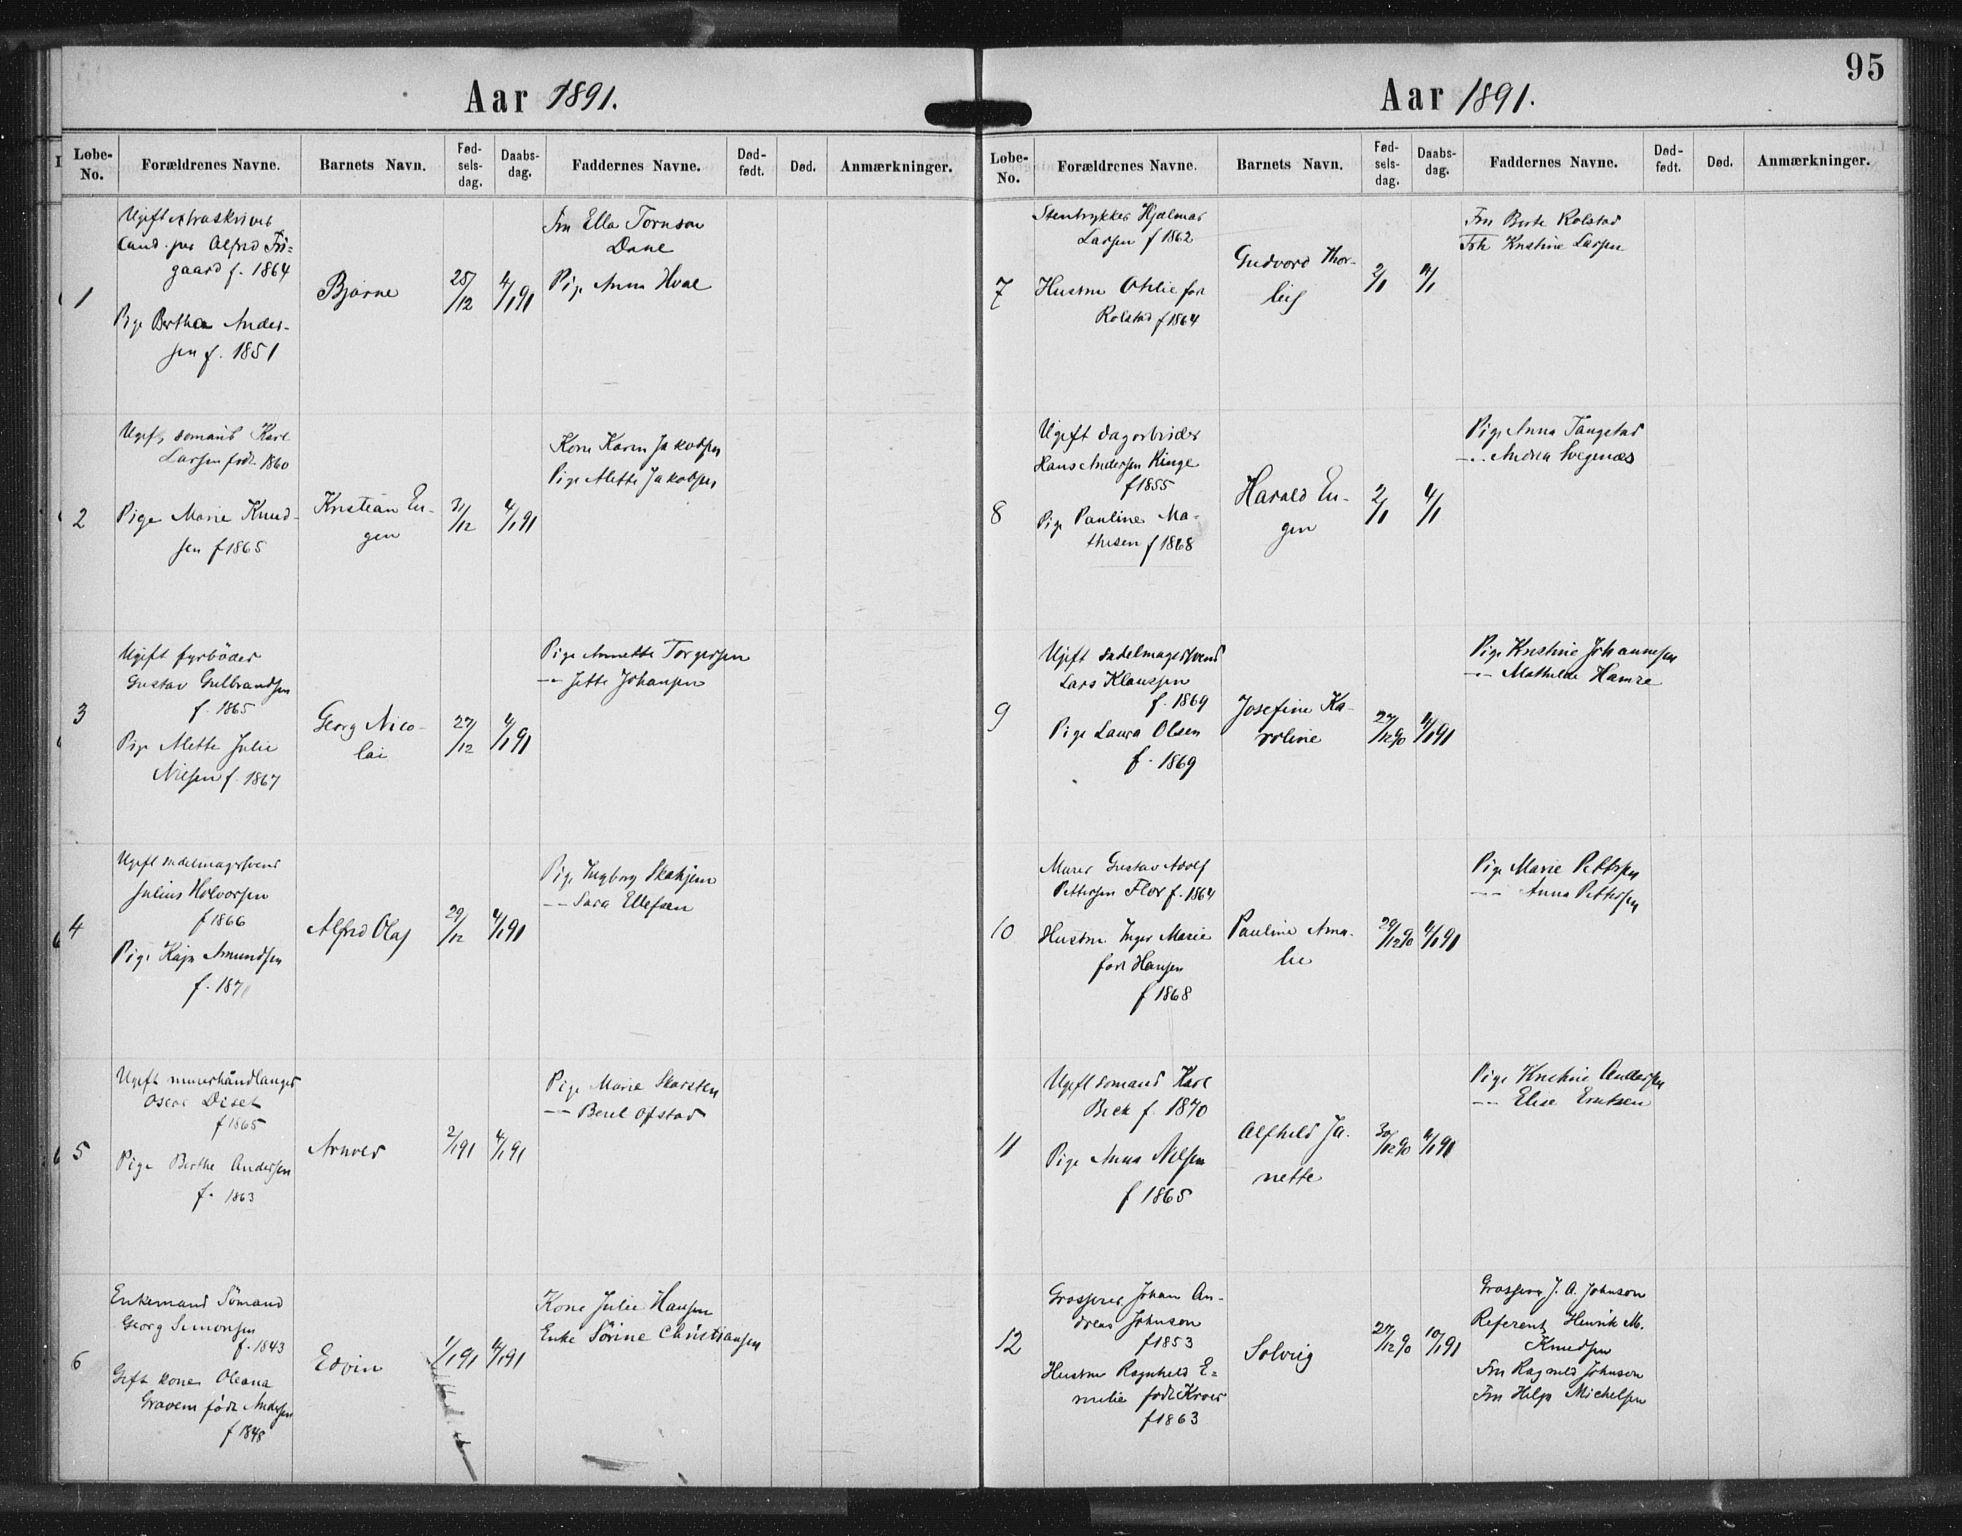 95
Aar 1891.
Løbe-No. Forældrenes Navne. Barnets Navn. Fød-sels-dag. Daabs-dag. Faddernes Navne. Død-født. Død. Anmærkninger.
1
Ugift extraskriver
cand. jur Alfred Fri=
gaard f. 1864
Pige Berthe Ander-
sen f. 1851
Bjarne
25/12
4/1 91
Fru Ella Tornson
Dane
Pige Anna Hval
2
Ugift sømand Karl
Larsen født 1860
Pige Marie Knud-
sen f 1865
Kristian Eu-
gen
31/12
4/1 91
Kone Karen Jakobsen
Pige Mette Jakobsen
3
Ugift fyrbøder
Gustav Gulbrandsen
f. 1865
Pige Mette Julie
Nilsen f. 1867
Georg Nico-
lai
27/12
4/1 91
Pige Annette Torgersen
-"- Jette Johansen
4
Ugift sadelmagersvend
Julius Halvorsen
f 1866
Pige Kaja Amundsen
f. 187
Alfred Olaf
29/12
4/1 91
Pige Ingborg Skahjem
-"- Sara Ellefsen
5
Ugift murerhåndlanger
Oscar Diset
f 1865
Pige Berthe Andersen
f. 1863
Arnold
2/1 91
4/1 91
Pige Marie Skarsten
-"- Beret Ofstad
6
Enkemand Sömand
Georg Simonsen
f. 1843
Gift kone Oleana
Gravem född Andersen
f 1848
Edvin
1/1 91
4/1 91
Kone Julie Hansen
Enke Sörine Christiansen
Aar 1891.
Løbe-No. Forældrenes Navne. Barnets Navn. Fød-sels-dag. Daabs-dag. Faddernes Navne. Død-født. Død. Anmærkninger.
7
Stentrykker Hjalmar
Larsen f 1862
Hustru Otilie født
Rolstad f 1864
Gudvord Thor-
leif
2/1
4/1
Fru Berte Rolstad
Frk Kristine Larsen
8
Ugift dagarbeider
Hans Andersen Ringe
f 1855
Pige Pauline Ma-
thisen f 1868
Harald Eu-
gen
2/1
4/1
Pige Anna Tangstad
-"- Andrea Svegnæs
9
Ugift sadelmagersvend
Lars Klaussen
f. 1869
Pige Laura Olsen
f. 1869
Josefine Ka-
roline
27/12 90
4/1 91
Pige Kristine Johannesen
-"- Mathilde Hamre
10
Murer Gustav Adolf
Pettersen Flor f. 1864
Hustru Inger Marie
født Hansen
f 1868
Pauline Ama-
lie
29/12 90
4/1 91
Pige Marie Pettersen
-"- Anna Pettersen
11
Ugift sømand Karl
Beck f. 1870
Pige Anna Nilsen
f 1865
Alfhild Ja-
nette
30/12 90
4/1 91
Pige Kristine Andersen
-"- Elise Erntsen
12
Grosserer Johan An-
dreas Johnson
f 1853
Hustru Ragnhild E=
milie født Kroer
f 1863
Solveig
27/12 90
10/1 91
Grosserer J. A. Johnson
Referent Henrik M.
Knudsen
Fru Ragnild Johnson
Fru Helga Michelsen